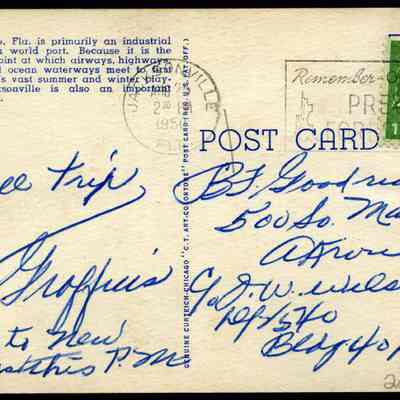 e, Fla. is primarily an industrial
world port. Because it is the
point at which airways, highways,
d ocean waterways meet to
's vast summer and winter play-
sonville is also an important
JACKSONVILLE
1950
Remember-
PRE
FOR
1
POST CARD
GENUINE CURTEICH-CHICAGO "C.T. ART-COLORTONE" POST CARD (REG. U.S. PAT. OFF.)
ee Trip
to new
this P.M
B.F. Goodri
500 So. Ma
Akron
c/o J.W. Wils
Dept 540
Bldg 40